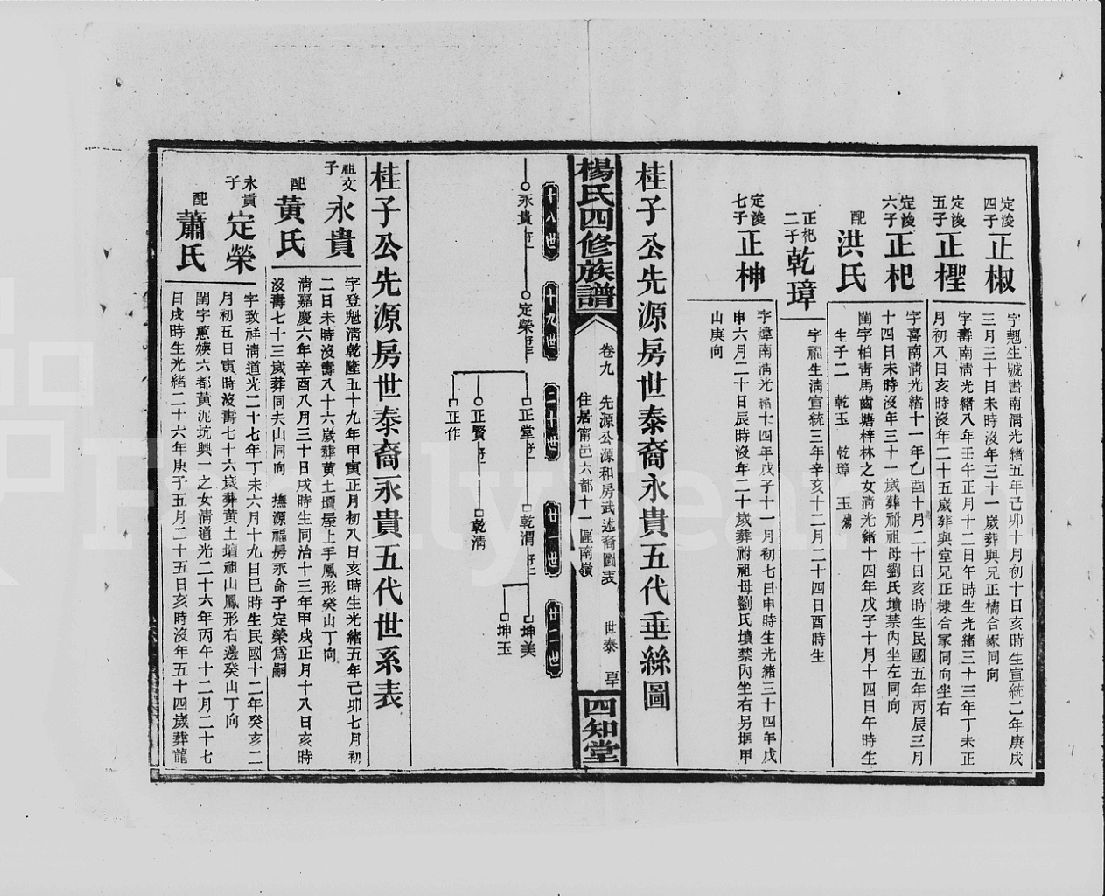 定浚四子 正椒
字魁生號書南清光緒五年己卯十月初十日亥時生宣統二年庚戌
三月三十日未時沒年三十一歲葬與兄正橘合冢同向
定浚五子 正檉
字壽南清光緒八年壬午正月十二日午時生光緒三十三年丁未正
月初八日亥時沒年二十五歲葬與堂兄正棣合冢同向坐右
定浚六子 正杞
字喜南清光緒十一年乙酉十月二十日亥時生民國五年丙辰三月
十四日未時沒年三十一歲葬祔祖母劉氏墳禁內坐左同向
配 洪氏
閨字柏青馬齒塘梓林之女清光緒十四年戊子十月十四日午時生
生子二 乾玉 乾璋 玉殤
正杞二子 乾璋
字龍生清宣統三年辛亥十二月二十四日酉時生
定浚七子 正榊
字譁南清光緒十四年戊子十一月初七日申時生光緒三十四年戊
申六月二十日辰時沒年二十歲葬祔祖母劉氏墳禁內坐右另堀甲
山庚向
桂子公先源房世泰裔永貴五代垂絲圖
楊氏四修族譜
卷九
先源公源和房武述裔圖表
住居甯邑六都十一區南嶺
世泰
四知堂
十八世 十九世 二十世 廿一世 廿二世
永貴 定榮 正堂 乾渭 坤美
坤玉
正賢 乾清
正作
桂子公先源房世泰裔永貴五代世系表
祖文子 永貴
字登魁清乾隆五十九年甲寅正月初八日亥時生光緒五年己卯七月初
二日未時沒壽八十六歲葬黄土壇屋上手鳳形癸山丁向
配 黃氏
清嘉慶六年辛酉八月三十日戌時生同治十三年甲戌正月十八日亥時
沒壽七十三歲葬同夫山同向 撫源福房永命子定榮爲嗣
永貴子 定榮
字致祥清道光二十七年丁未六月十九日巳時生民國十二年癸亥二
月初五日寅時沒壽七十六歲葬黄土壇祖山鳳形右邊癸山丁向
配 蕭氏
閨字蕙嫫六都黃泥坑興一之女清道光二十六年丙午十二月二十七
日戌時生光緒二十六年庚子五月二十五日亥時沒年五十四歲葬龍